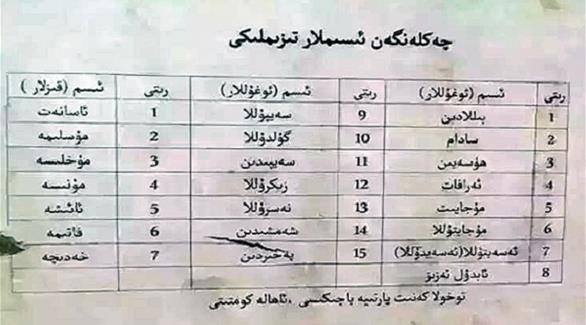 چەكلەنگەن ئىسىملار تىزىملىكى
رىتى ئىسىم (ئوغۇللار) رىتى ئىسىم (ئوغۇللار) رىتى ئىسىم (قىزلار)
1 بىللادىن 9 سەيپۇللا 1 ئاسانەت
2 سادام 10 گۇلدۇللا 2 مۇسلىمە
3 ھۈسەيىن 11 سەيپىدىن 3 مۇخلىسە
4 ئەرافات 12 زىكرۇللا 4 مۇنىسە
5 مۇجايىت 13 نەسرۇللا 5 ئائىشە
6 مۇجايتۇللا 14 شەمشىدىن 6 فاتىمە
7 ئەسەيتۇللا(ئەسەيدۇللا) 15 پەخىردىن 7 خەدىچە
8 ئابدۇل ئەزىز
توخولا كەنىت پارتىيە ياچىكىسى ،ئاھالە كومتىتى